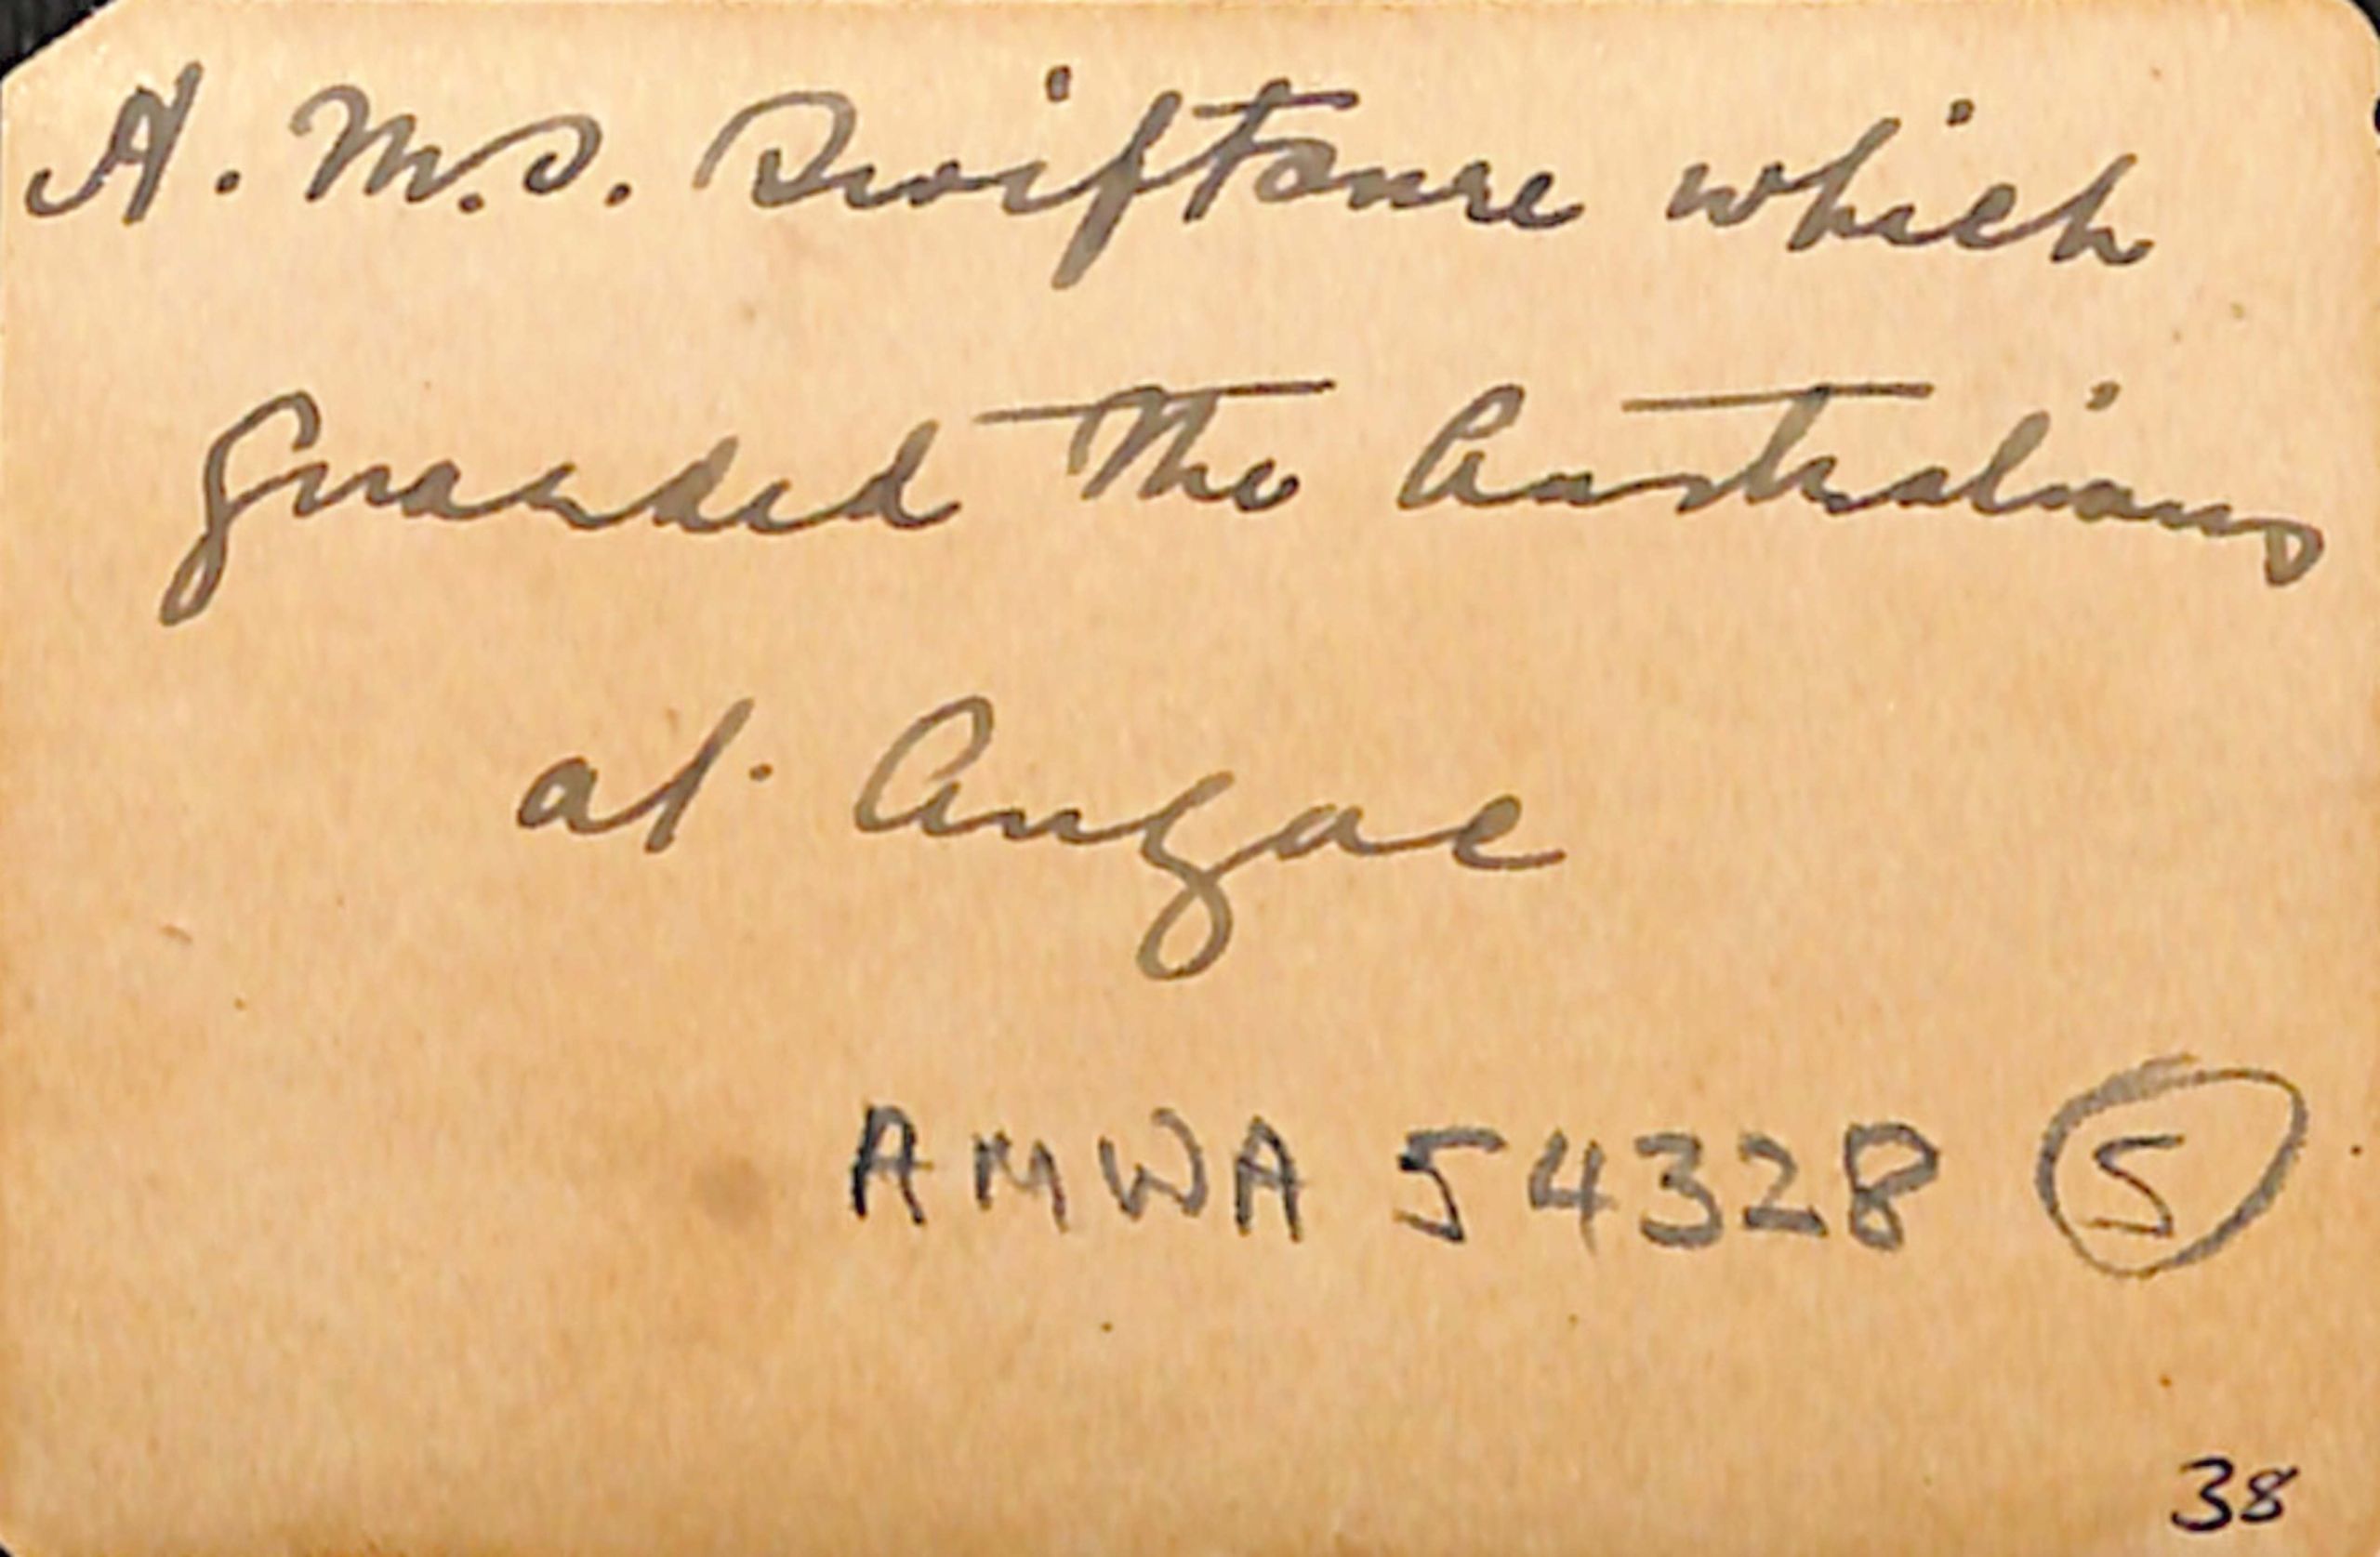 H.M.S. Swiftsure which
guarded the Australians
at Anzac
AMWA 54328 5
38